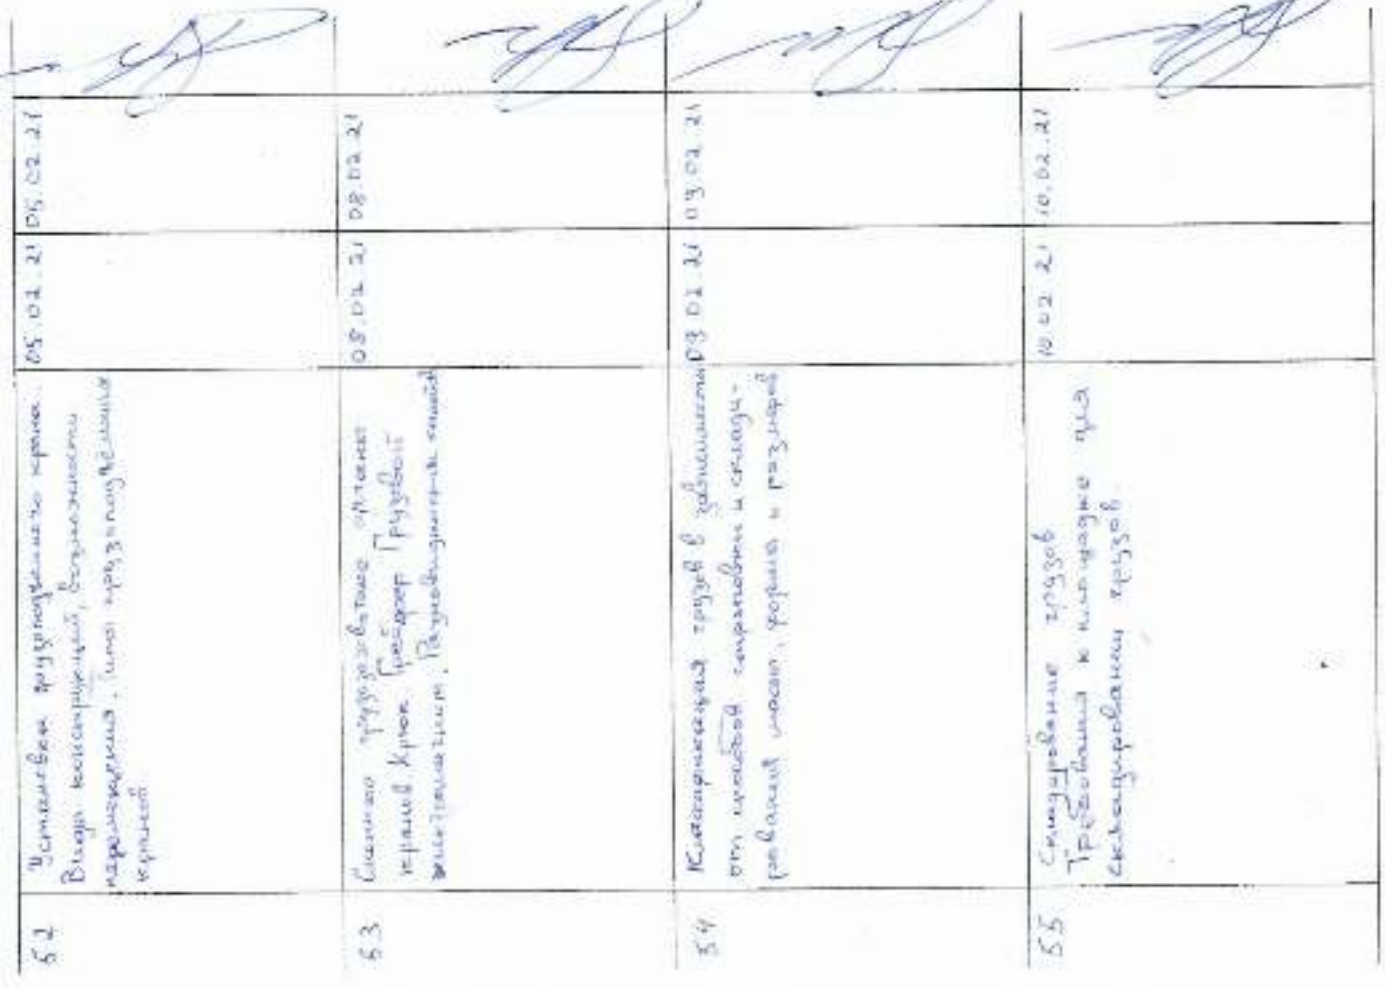 52
Установка грузоподъемного крана.
Виды конструкций, возможности
перемещения, типы грузоподъёмных
кранов
05.02.21
05.02.21
53
Сменные грузозахватные органы
кранов. Крюк. Грейфер Грузовой
электромагнит. Разновидности
08.02.21
08.02.21
54
Классификация грузов в зависимости
от способов строповки и складиро-
рования массы, формы и размеров
09.02.21
09.02.21
55
Складирование грузов
Требования к площадке для
складирования грузов.
10.02.21
10.02.21